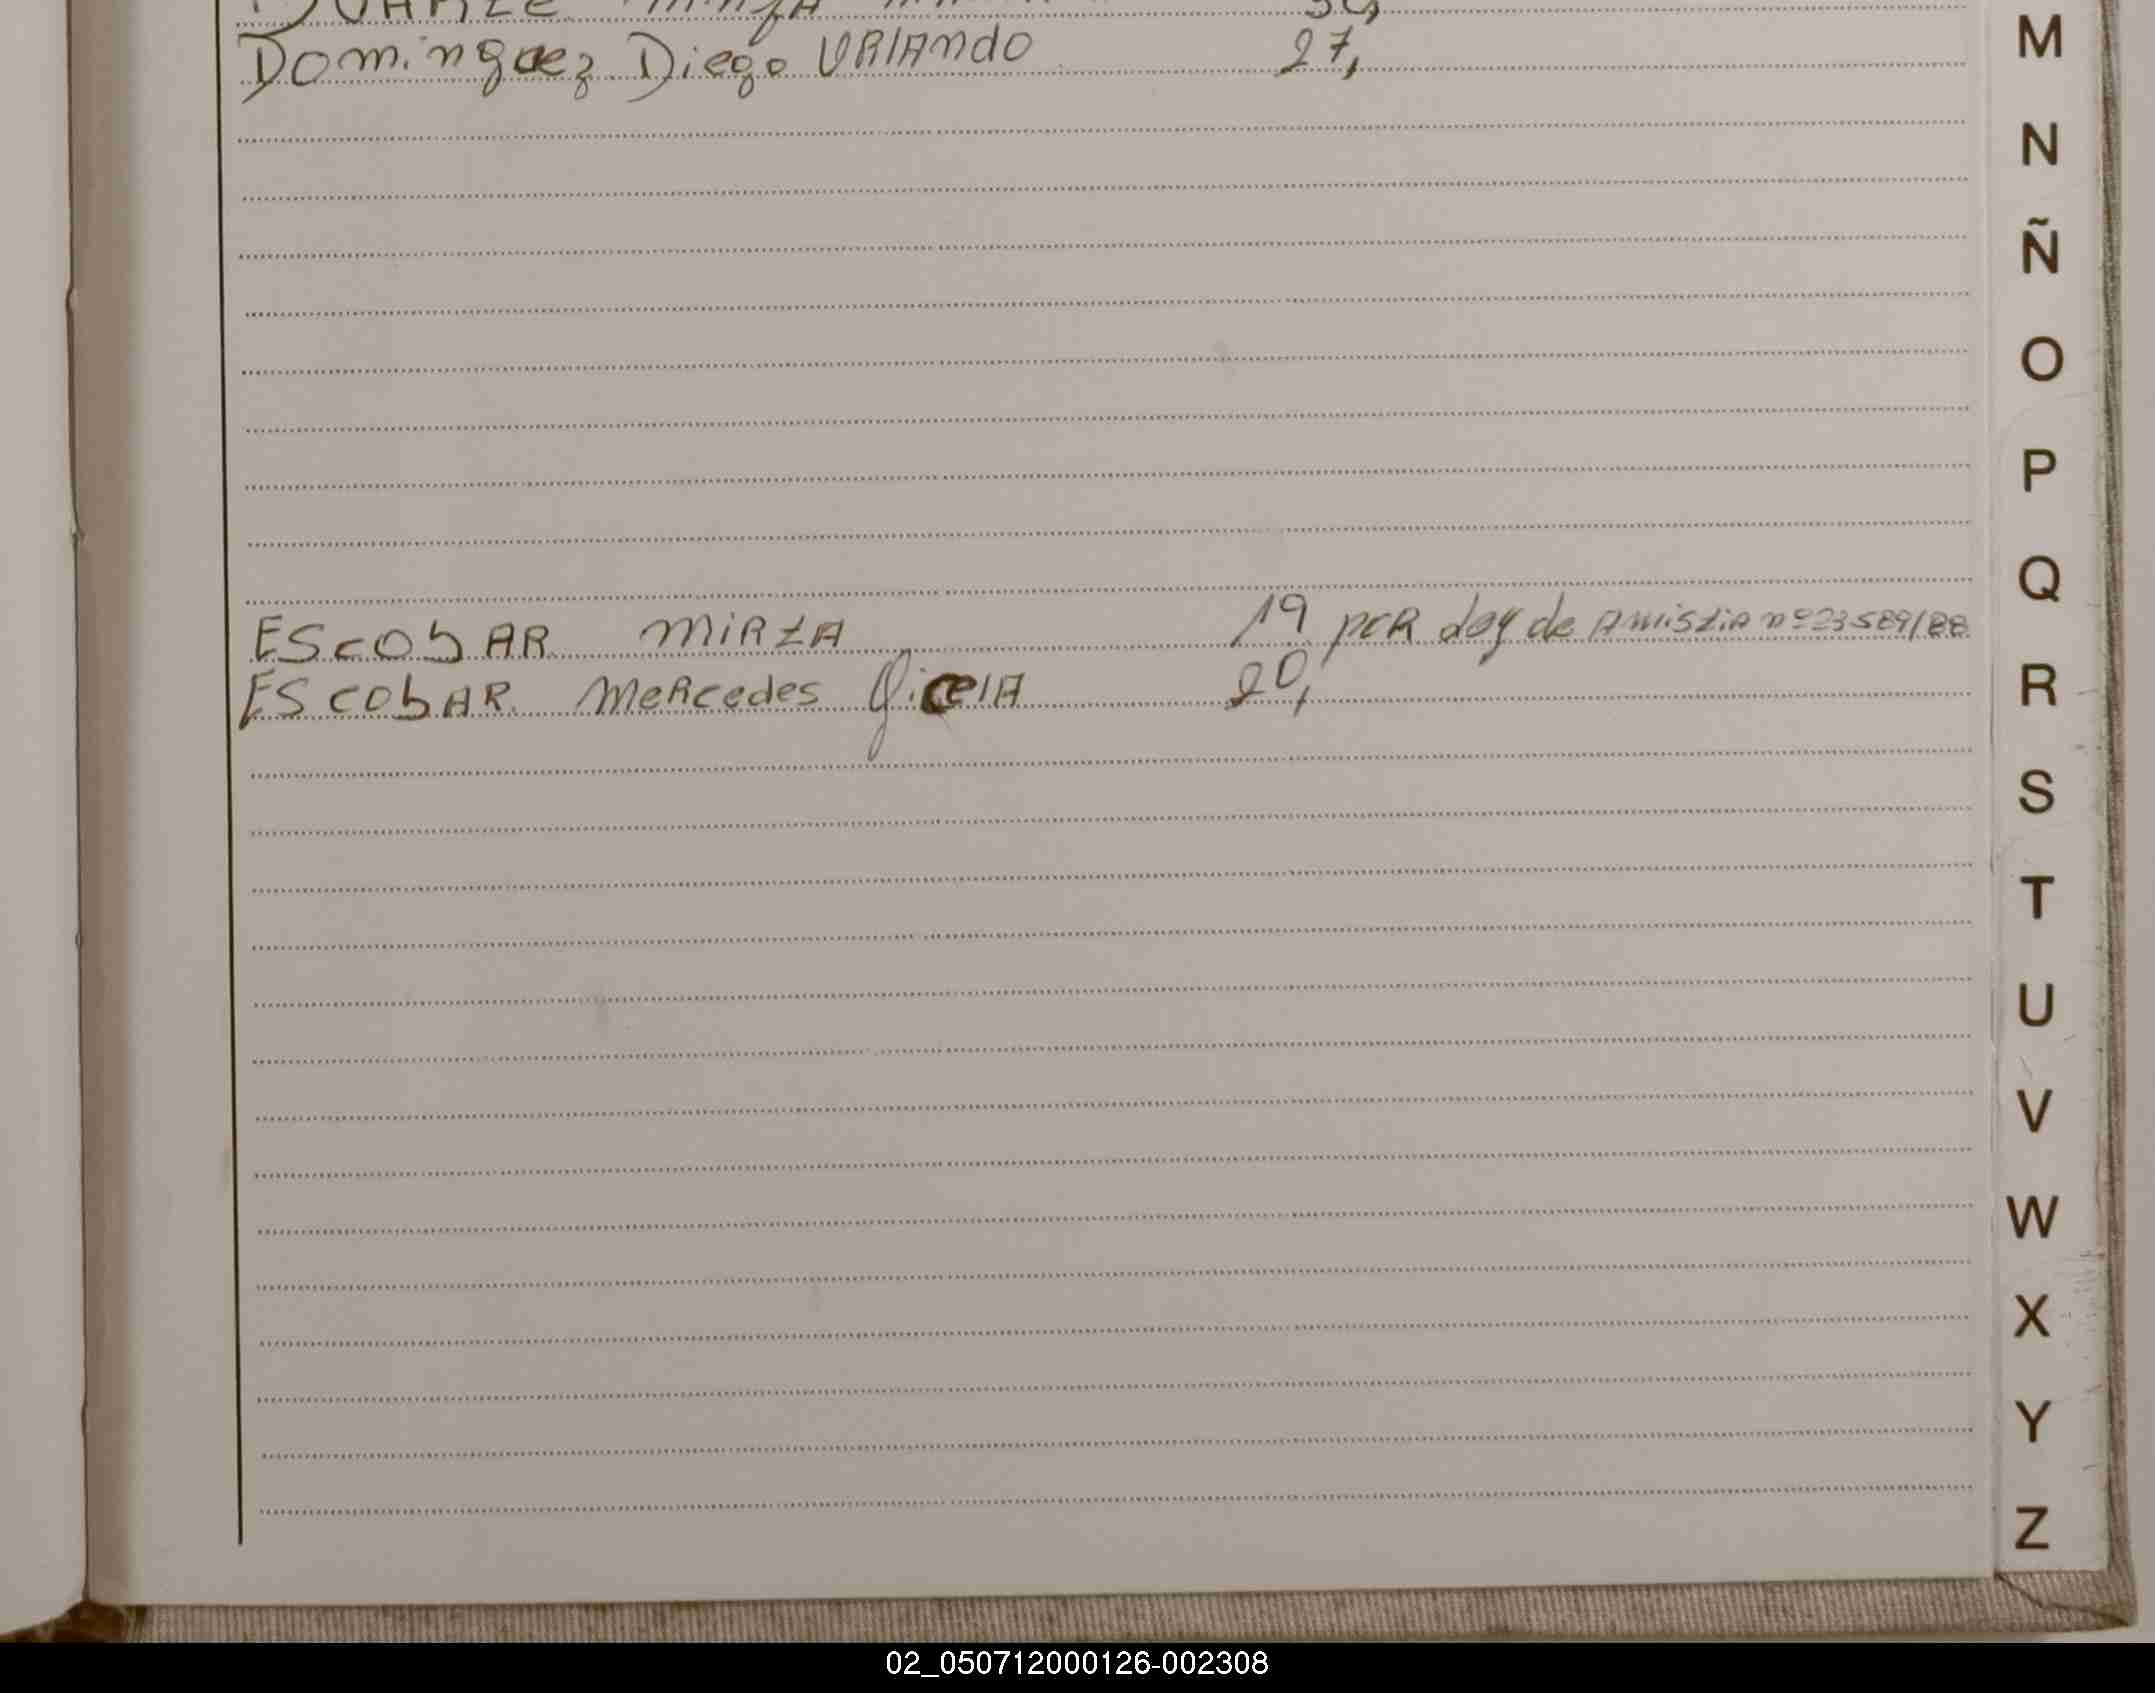 Dominguez Diego URIANDO 27,
EScobAR MiRtA 19 poR ley de Amistia nº 23589/88
EScobAR MeRcedes GiceIA 20,
M
N
Ñ
O
P
Q
R
S
T
U
V
W
X
Y
Z
02_050712000126-002308